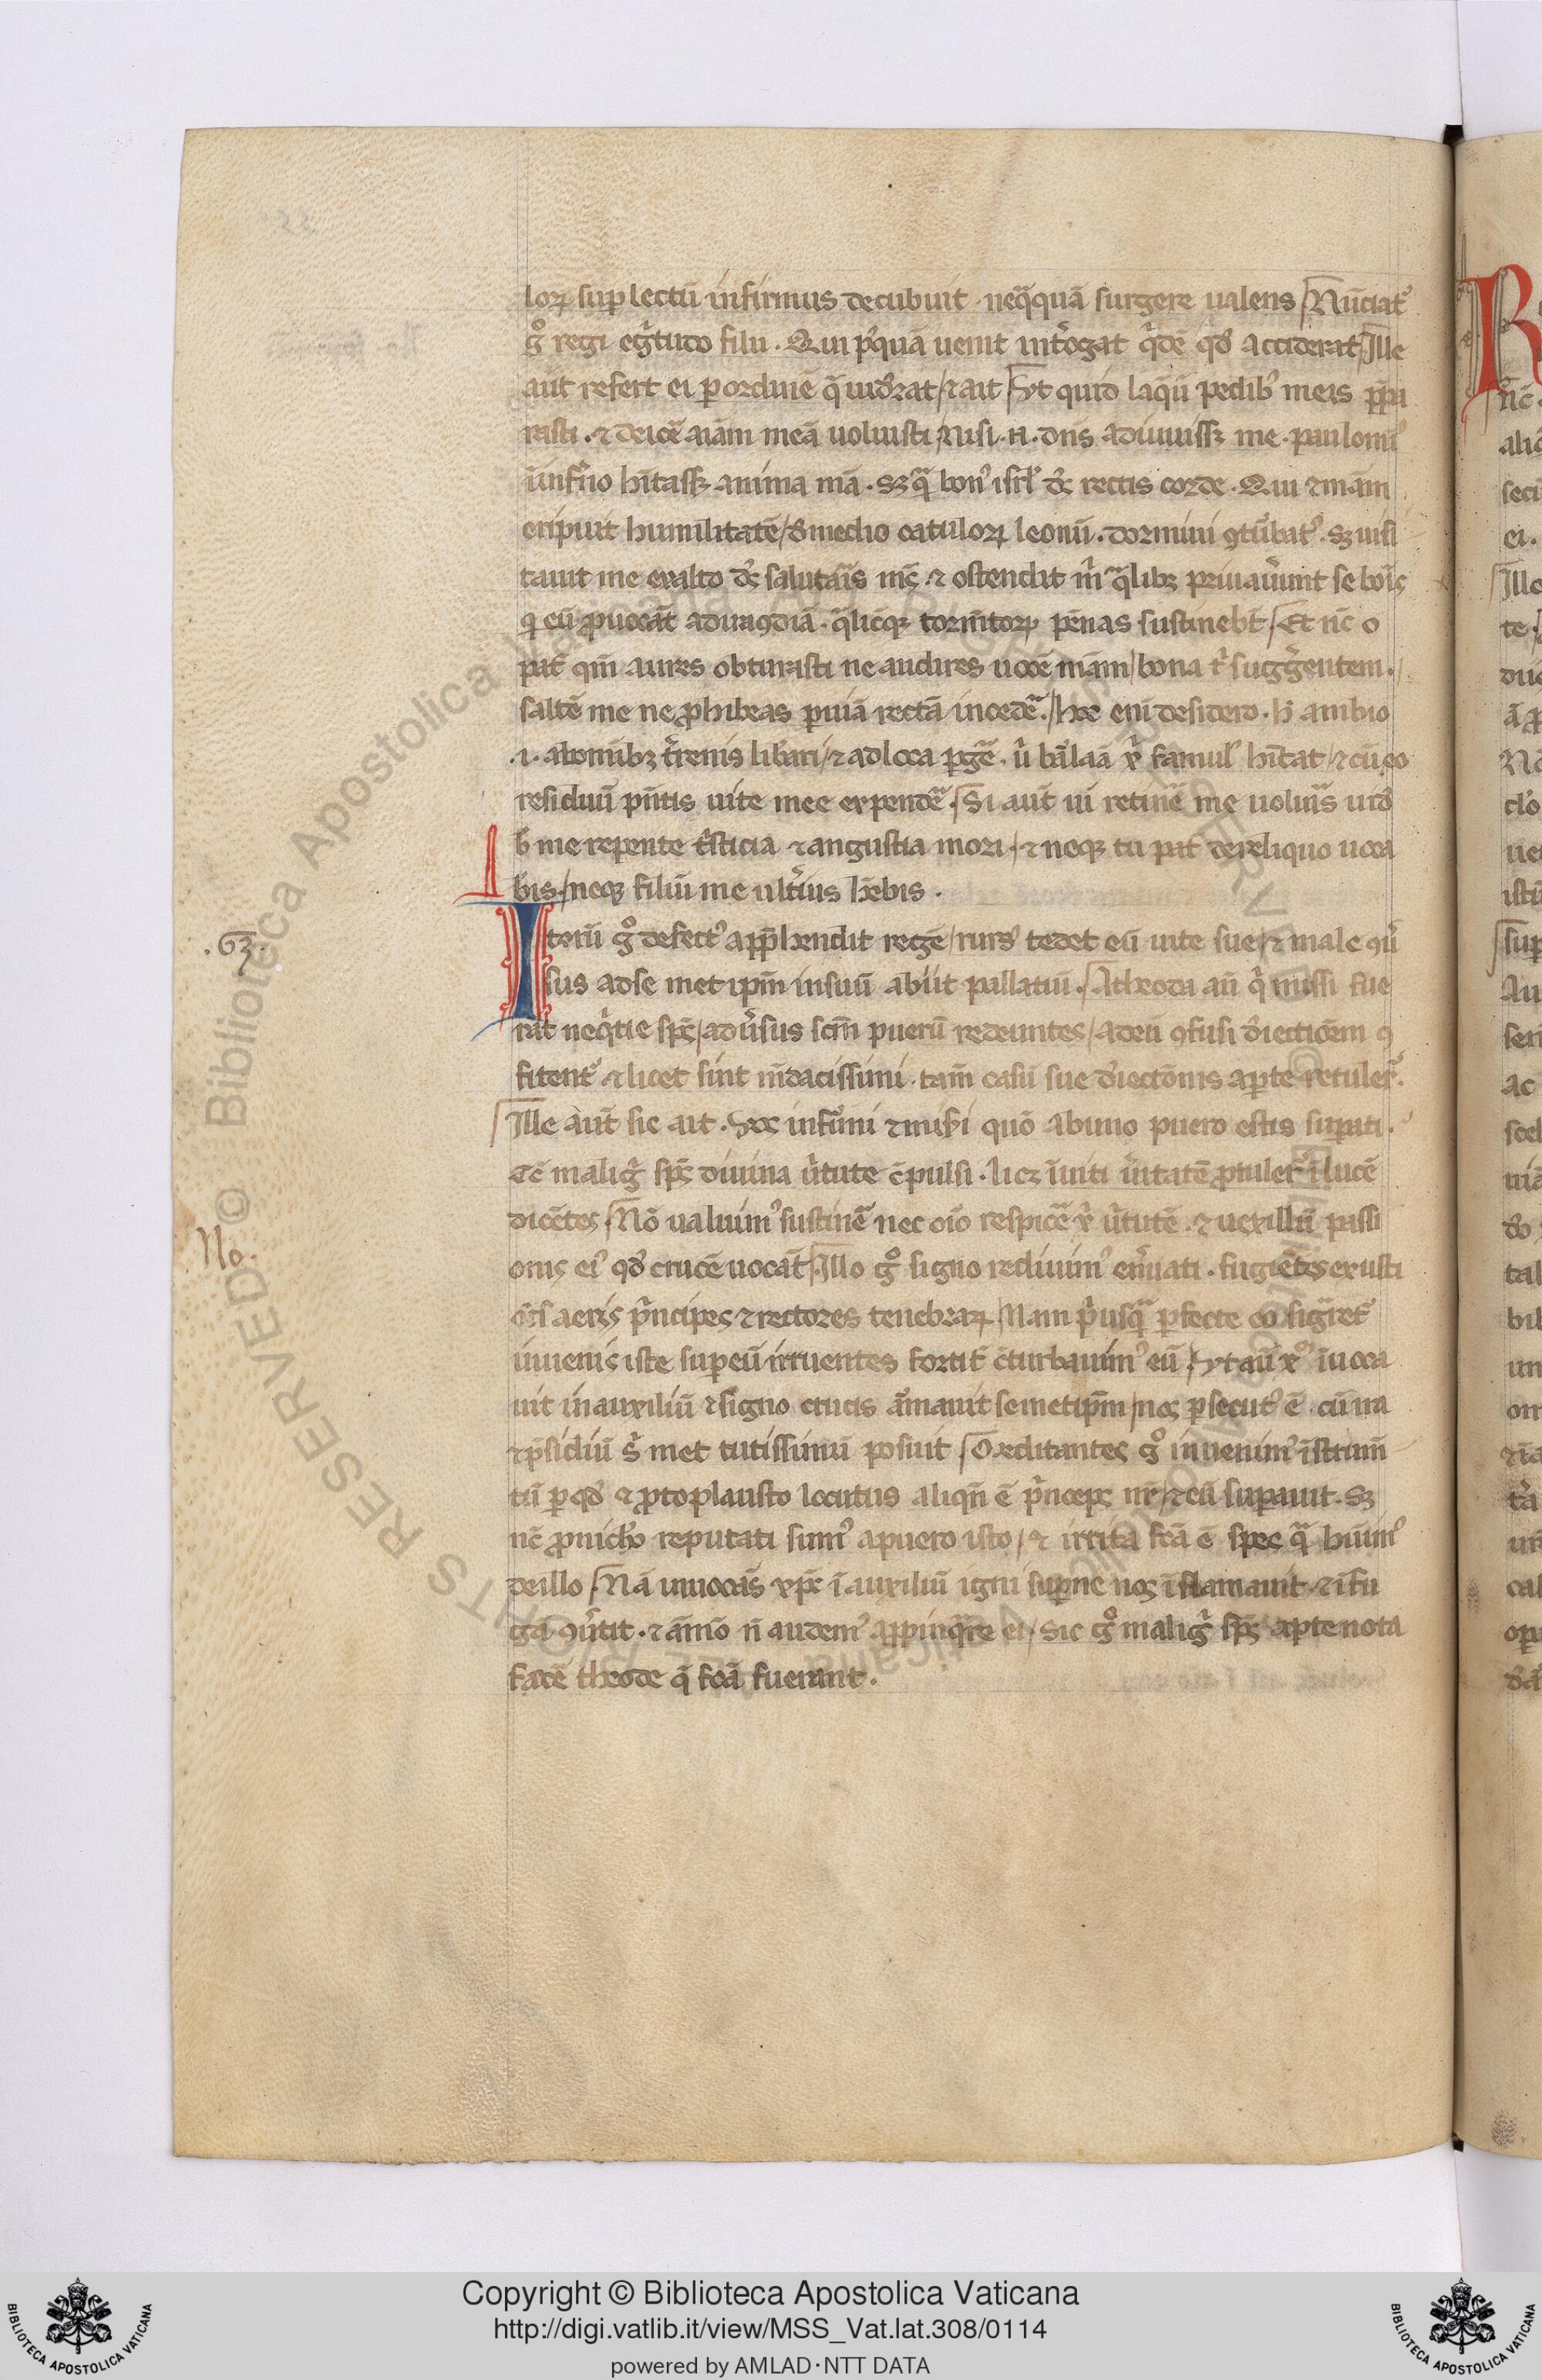 loꝝ sup lectū infirmus decubuit neq̄quā surgere ualens Nūciat᷒
gͦ regi eg̃tudo filii . Qui pꝰquā uenit int̃ogat q̇dē qd᷒ acciderat Ille
aūt refert ei p ordinē q̄ uid᷒at / ⁊ ait Vt quid laq̄ū pedib᷒ meis p̄pa
rasti . ⁊ deicē aīam meā uoluisti / Nisi .n. dn̄s adiuuissꝫ me . paulomi᷒
ī inferno hītassꝫ anima mā . sꝫ q̄ bon᷒ isrl᷒ d̄s rectis corde . Qui ⁊ mām
eripuit humilitatē / d᷒ medio catuloꝝ leonū . dormiui ꝯturbat᷒ . sꝫ uisi
tauit me ex alto d̄s salutaris m̄s ⁊ ostendit m̄ q̄libꝫ priuauer̄unt se bonis
q̇ eū ꝓuocāt ad iracūdiā . q̄licūqꝫ tormētoꝝ penas sustinebt̄ / Et nc̄ o
pat̄ qm̄ aures obturasti ne audires uocē mām / bona t̄ sugg̃entem .
saltē me ne ꝓhibeas p uiā rectā inced̄e . / Hoc eni desidero . h̄ ambio
.i. ab omībꝫ t̄renis lib̄ari / ⁊ ad loca ꝑge . ū bālaā x̄ famul᷒ hītat / ⁊ cū eo
residuū p̄ntis uite mee expend̄e . Si aūt ui retin̄e me uolu̅is uid᷒
b̄ me repente t̃sticia ⁊ angustia mori . ⁊ neqꝫ tu pat̄ de reliquo uoca
bis . / neqꝫ filiū me ult̃ius h̄ebis .
.63.
Iterū gͦ defect᷒ app̄hendit regē / rurs᷒ tedet eū uite sue / ⁊ male ꝯũ
sus ad se met ip̄m in suū abiit pallatiū . Atheoda aū q̇ missi fue
rāt neq̇tie sp̄s / adũsus scm̄ puerū redeuntes / ad eū ꝯfusi d᷒iectiōem ꝯ
fitent᷒ ⁊ licet sint m̄dacissimi . tam̄ casū sue d᷒iectōnis aperte retuler̃ .
Ille aūt sic ait . Vos infirmi ⁊ miseri quō ab uno puero estis supati .
Tc̄ malig̃ sp̄s diuina ũtute ꝯpulsi . licꝫ inuiti ũitatē ꝓtuler̃ ī lucē
No.
dicētes . Nō ualuim᷒ sustin̄e nec oīo respic̄e x̄ ũtutē . ⁊ uexillū passi
onis ei᷒ qd᷒ crucē uocāt . Illo gͦ signo rediuim᷒ enũati . fugiētes exusti
oēs aeris p̃ncipes ⁊ rectores tenebraꝝ / Nam p̃usq̄ pfecte eo sig̃ret᷒
iuuenis iste sup eū irruentes fortit̄ cturbauim᷒ eū / Vt aū x̄ᷤ inuoca
uit in auxiliū ⁊ signo crucis armauit semet ip̄m / nos psecut᷒ ē . cū ira
⁊ p̄sidiū s᷒ met tutissimū posuit / Meditantes gͦ inuenim᷒ īstrum̄
tū p qd᷒ ⁊ ꝓtoplausto locutus aliqn̄ ē p̃nceps nr̄ / ⁊ eū supauit . sꝫ
nc̄ ꝓ nichᷤo reputati sum᷒ a puero isto / ⁊ irrita fcā ē spes q̄ hūim᷒
de illo / Nā inuocās xp̄s ī auxiliū igni supne nos ī flamauit . ⁊ ī fu
gā ꝯũtit . ⁊ āmō n̄ audem᷒ appinq̄re ei / sic gͦ malig̃ sp̄s apte nota
facē theode q̄ fcā fuerant .
Copyright © Biblioteca Apostolica Vaticana
http://digi.vatlib.it/view/MSS_Vat.lat.308/0114
powered by AMLAD·NTT DATA